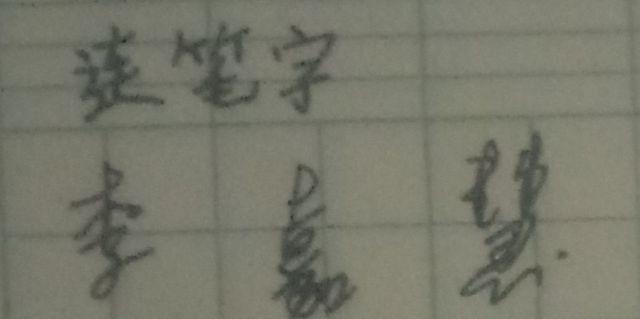 连笔字
李嘉慧